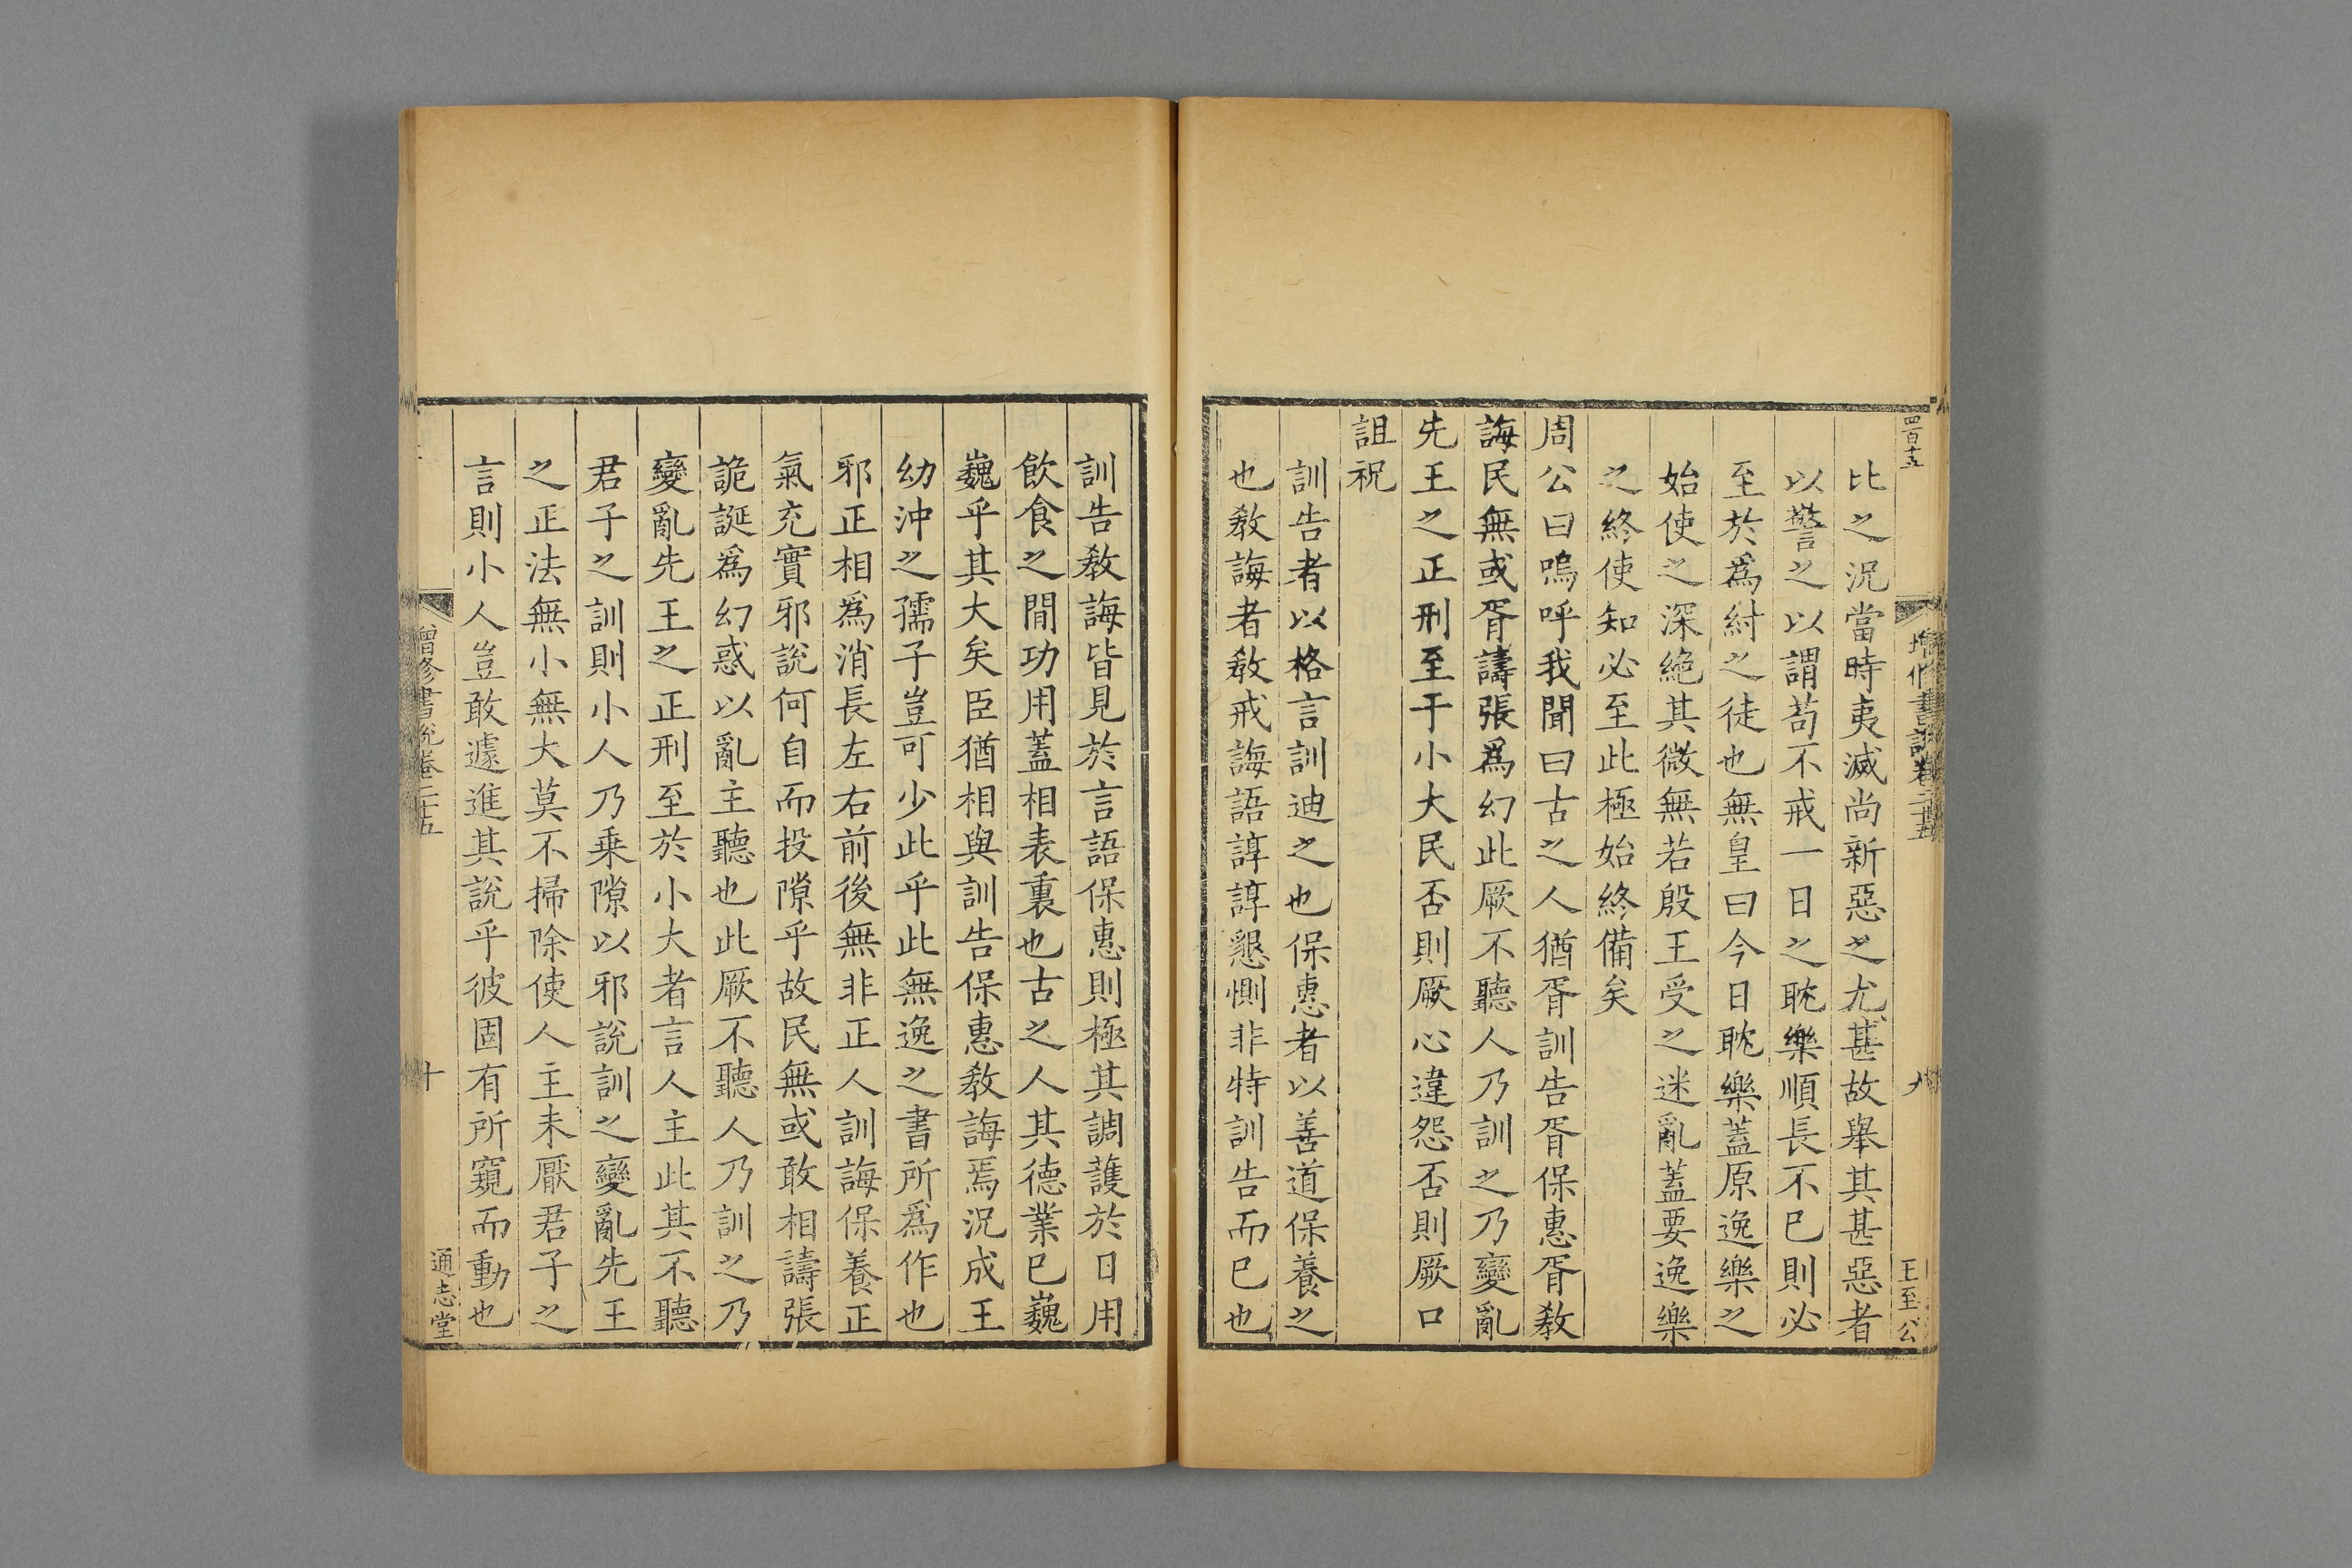 四百十五
增修書說卷二十五
九
王至公
比之況當時夷滅尚新惡之尤甚故舉其甚惡者
以警之以謂苟不戒一日之耽樂順長不已則必
至於爲紂之徒也無皇曰今日耽樂蓋原逸樂之
始使之深絶其微無若殷王受之迷亂蓋要逸樂
之終使知必至此極始終備矣
周公曰嗚呼我聞曰古之人猶胥訓告胥保惠胥敎
誨民無或胥譸張爲幻此厥不聽人乃訓之乃變亂
先王之正刑至于小大民否則厥心違怨否則厥口
詛祝
訓告者以格言訓迪之也保惠者以善道保養之
也敎誨者敎戒誨語諄諄懇惻非特訓告而已也
訓告敎誨皆見於言語保惠則極其調護於日用
飲食之閒功用蓋相表裏也古之人其德業已巍
巍乎其大矣臣猶相與訓告保惠敎誨焉況成王
幼沖之孺子豈可少此乎此無逸之書所爲作也
邪正相爲消長左右前後無非正人訓誨保養正
氣充實邪說何自而投隙乎故民無或敢相譸張
詭誕爲幻惑以亂主聽也此厥不聽人乃訓之乃
變亂先王之正刑至於小大者言人主此其不聽
君子之訓則小人乃乗隙以邪說訓之變亂先王
之正法無小無大莫不掃除使人主未厭君子之
言則小人豈敢遽進其說乎彼固有所窺而動也
增修書說卷二十五
十
通志堂